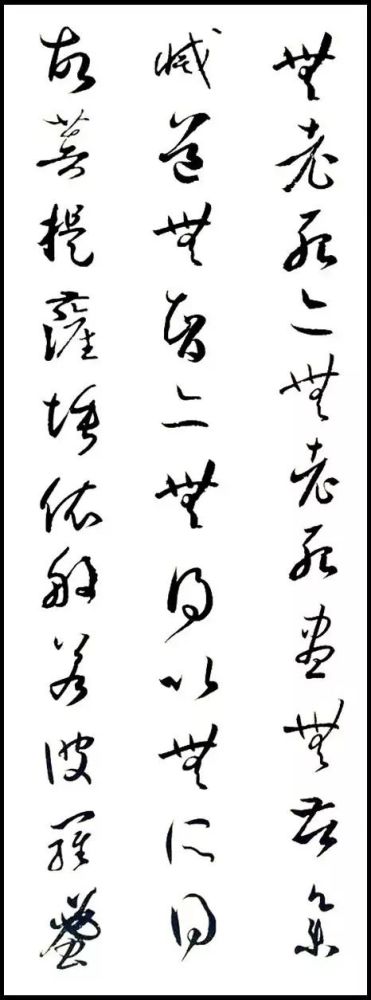 無老死亦無老死盡無苦集
滅道無智亦無得以無所得
故菩提薩埵依般若波羅蜜